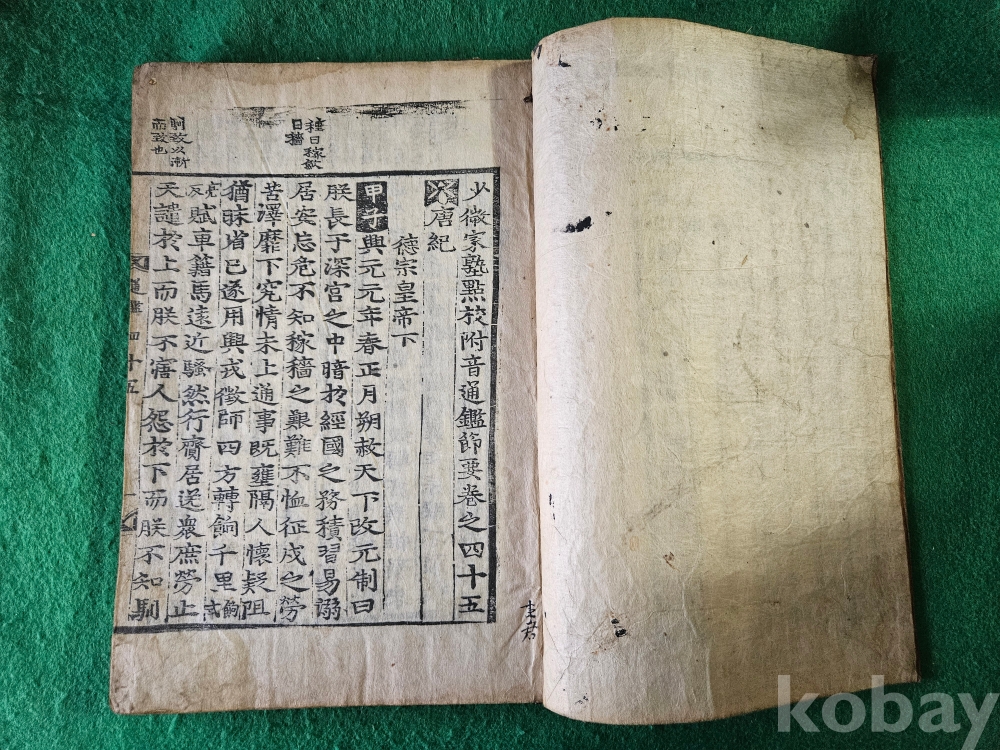 種曰稼斂
曰穡
馴致以漸
而致也
少微家塾點校附音通鑑節要卷之四十五
唐紀
德宗皇帝下
甲子興元元年春正月朔赦天下改元制曰
朕長于深宮之中暗於經國之務積習易溺
居安忘危不知稼穡之艱難不恤征戍之勞
苦澤靡下究情未上通事既壅隔人懷疑阻
猶昧省已遂用興戎徵師四方轉餉千里餉式
亮反賦車籍馬遠近騷然行齎居送衆庶勞止
天譴於上而朕不寤人怨於下而朕不知馴
通鑑四十五
kobay